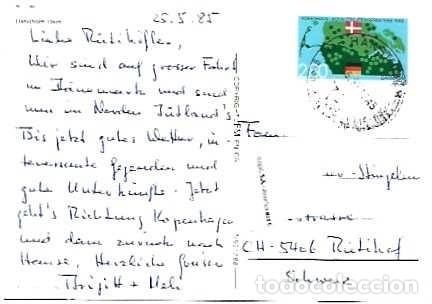 25.5.85
Liebe Rütihöfler,
Wir sind auf grosser Fahrt
in Dänemark und sind
nun in Norden Jütland's
Bis jetzt gutes Wetter, in-
teressante Gegenden und
gute Unterkünfte. Jetzt
geht's Richtung Kopenhagen
und dann zurück nach
Hause. Herzliche Grüsse
Brigitt + Ueli
280
Fam.
strasse
CH-5406 Rütihof
Schweiz
todocoleccion